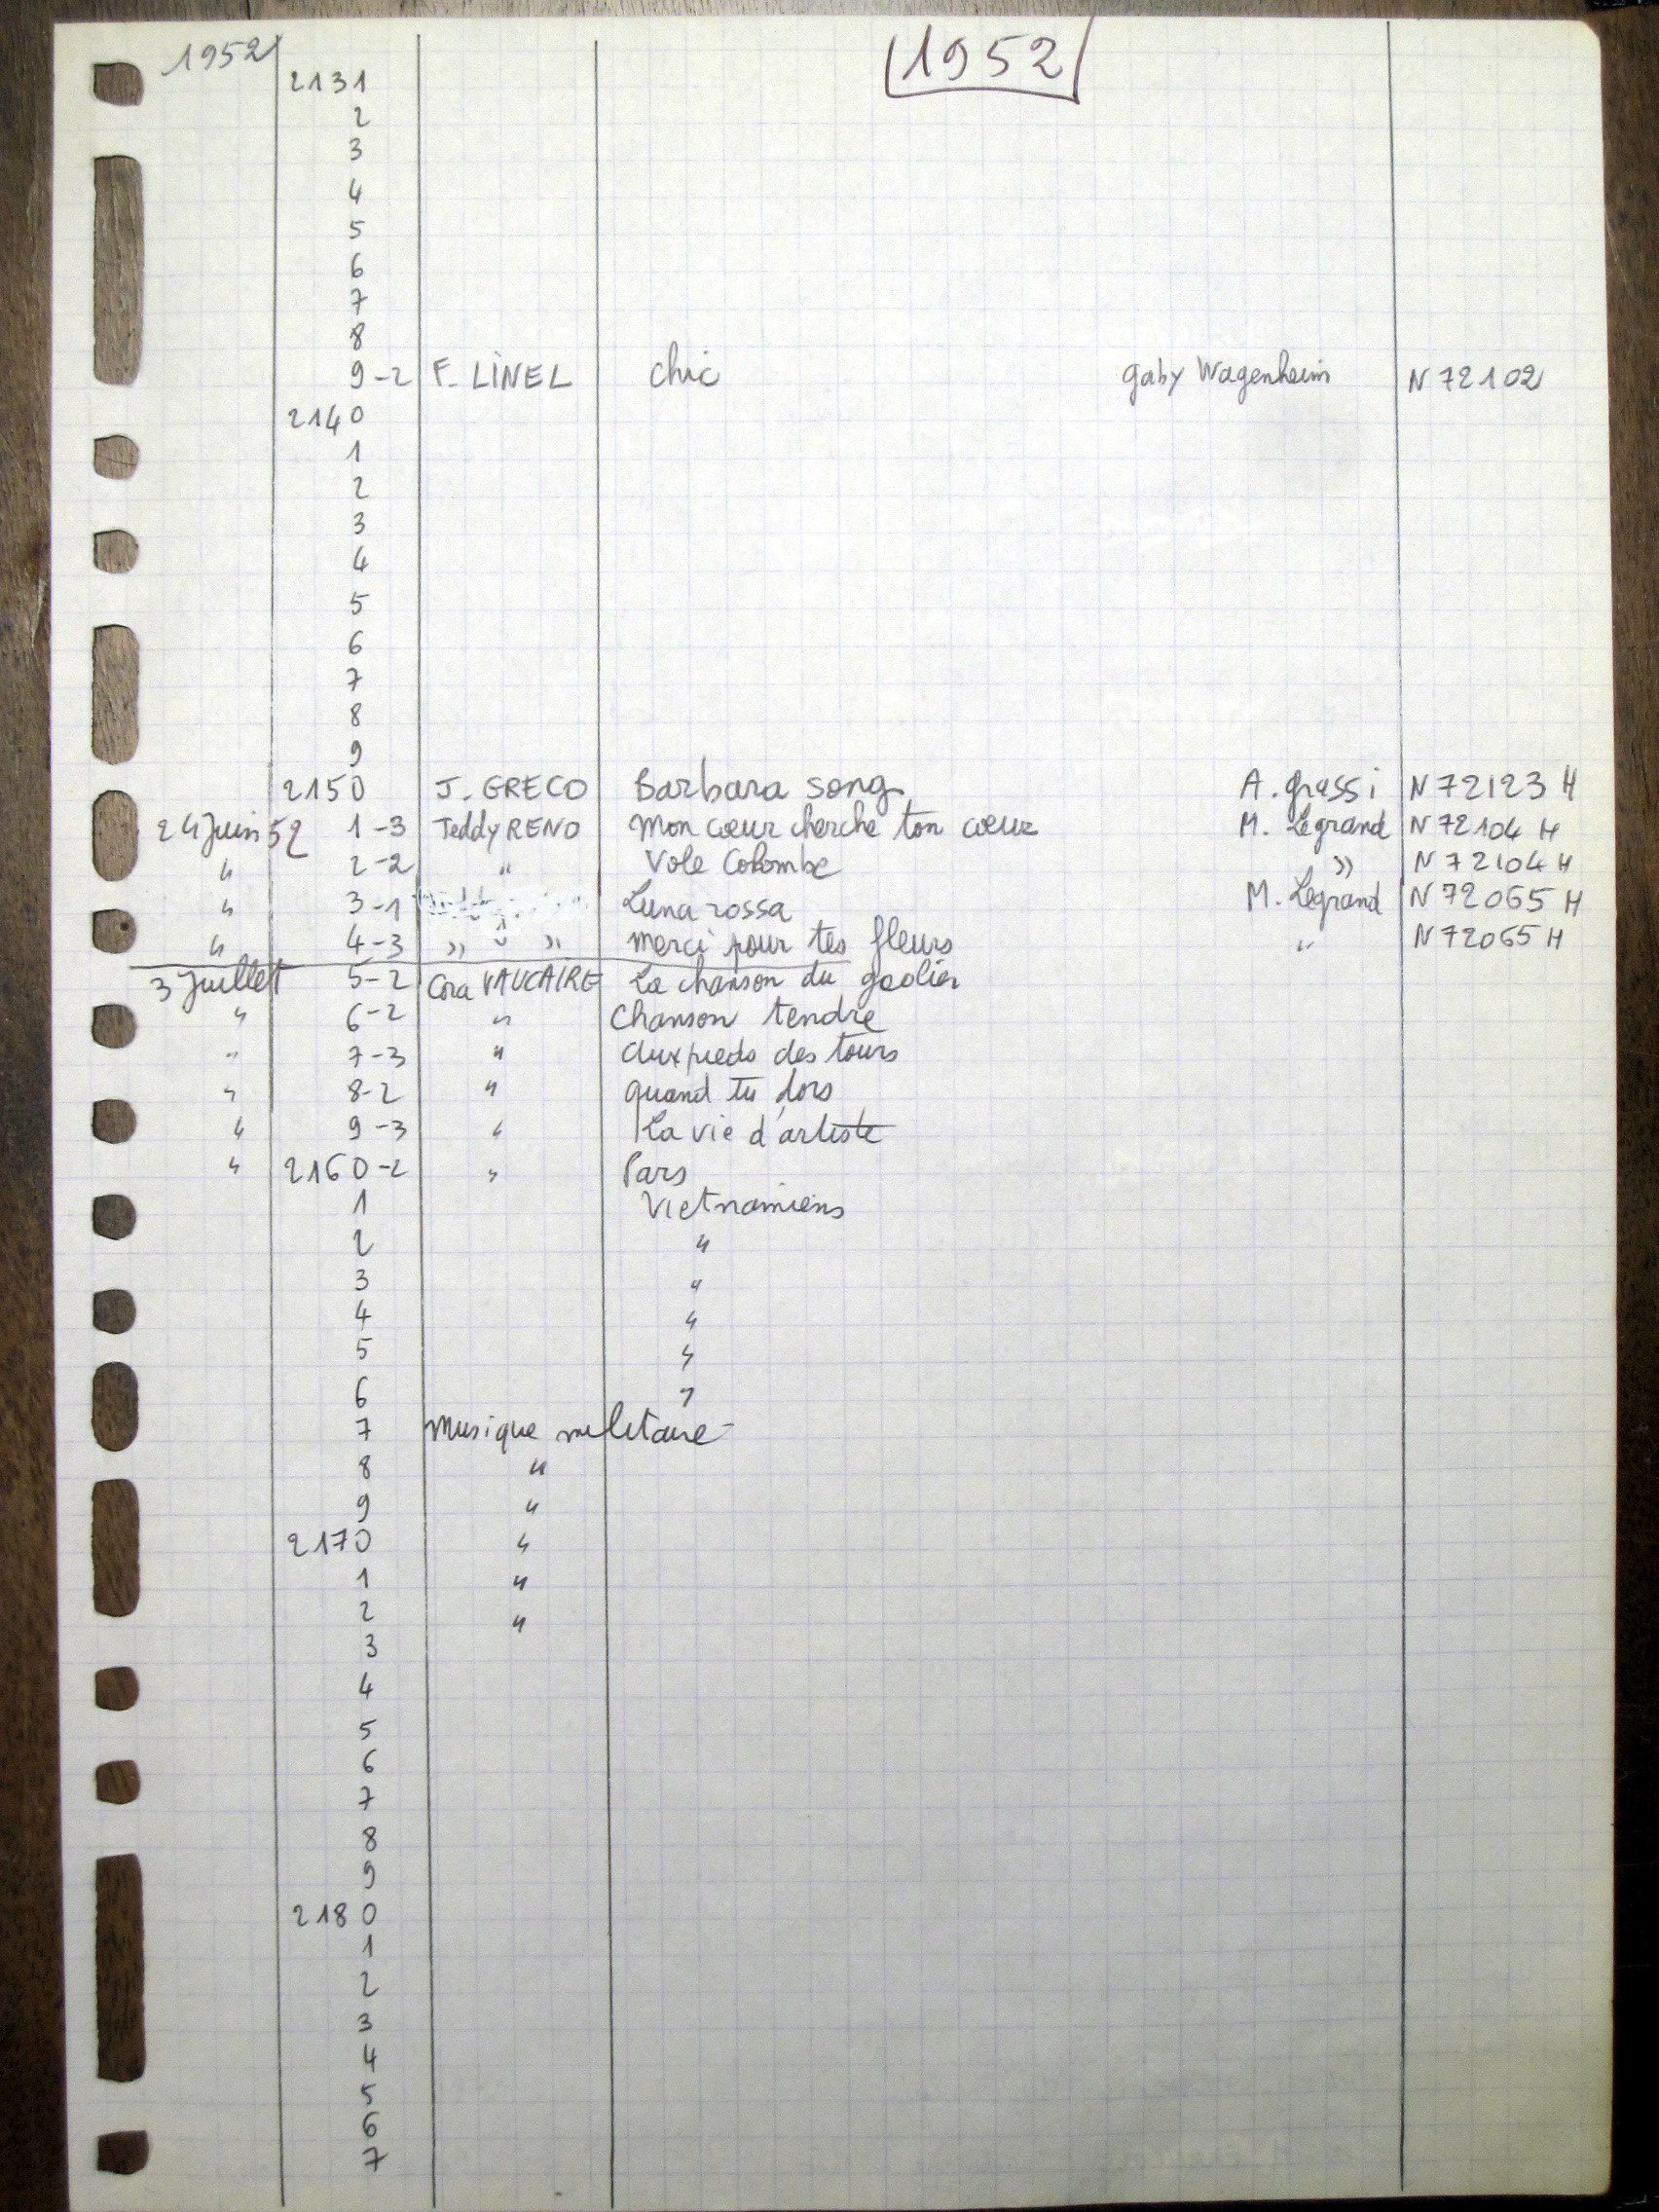 1952 1952
2131
2
3
4
5
6
7
8
9-2 F. LINEL Chic Gaby Wagenheim N 72102
2140
1
2
3
4
5
6
7
8
9
2150 J. GRECO Barbara song A. Grassi N 72123 H
24 Juin 52 1-3 Teddy RENO Mon cœur cherche ton cœur M. Legrand N 72104 H
" 2-2 " Vole Colombe " N 72104 H
" 3-1 Luna rossa M. Legrand N 72065 H
" 4-3 " " " Merci pour tes fleurs " N 72065 H
3 Juillet 5-2 Cora VAUCAIRE La chanson du geolier
" 6-2 " Chanson tendre
" 7-3 " Aux pieds des tours
" 8-2 " quand tu dors
" 9-3 " La vie d'artiste
" 2160-2 " Pars
1 Vietnamiens
2 "
3 "
4 "
5 "
6 "
7 Musique militaire
8 "
9 "
2170 "
1 "
2 "
3
4
5
6
7
8
9
2180
1
2
3
4
5
6
7